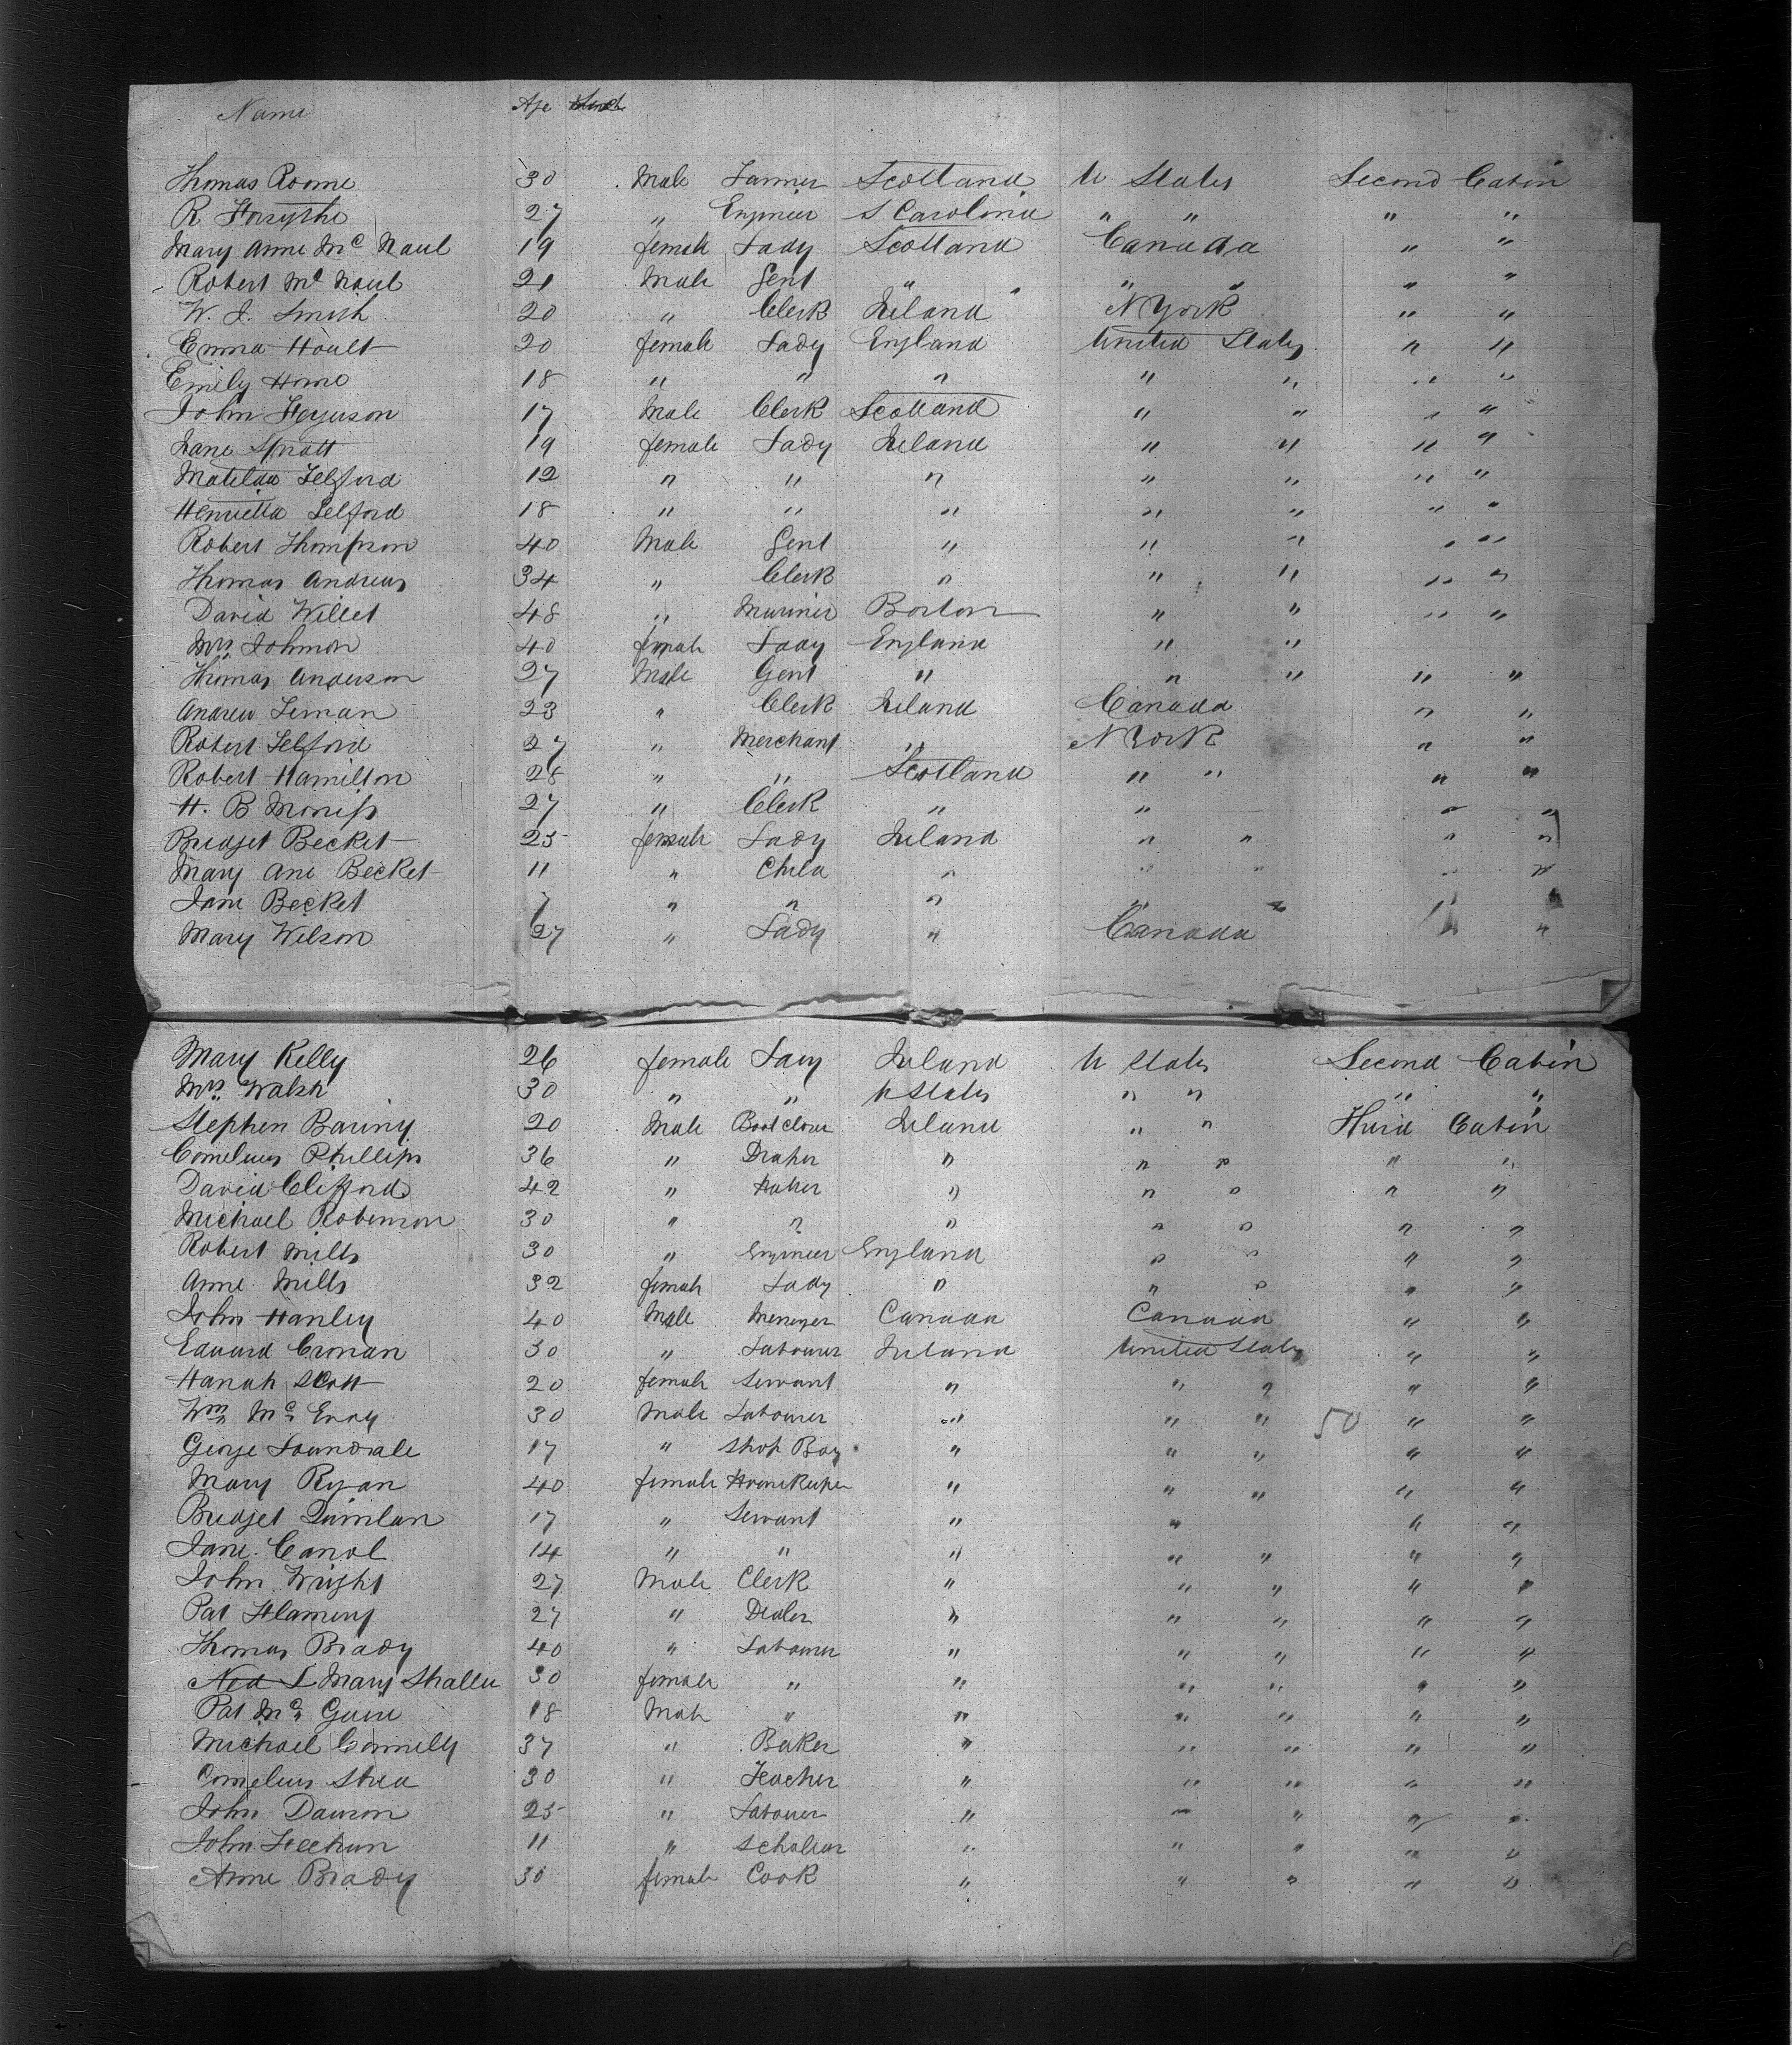 Name Age
Thomas Roome 30 Male Farmer Scotland U States Second Cabin
R Forsythe 27 " Engineer S Carolina " " " "
Mary Anne Mc Naul 19 female Lady Scotland Canada " "
Robert Mc Naul 21 Male Gent " " " " " "
W. J. Smith 20 " Clerk Ireland N York " "
Emma Hoult 20 female Lady England United States " "
Emily Home 18 " " " " " " "
John Ferguson 17 Male Clerk Scotland " " " "
Jane Spratt 19 female Lady Ireland " " " "
Matilda Telford 12 " " " " " " "
Henrietta Telford 18 " " " " " " "
Robert Thompson 40 Male Gent " " " " "
Thomas Andrews 34 " Clerk " " " " "
David Willet 48 " Mariner Boston " " " "
Mrs Johnson 40 female Lady England " "
Thomas Anderson 27 Male Gent " " " " "
Andrew Leman 23 " Clerk Ireland Canada " "
Robert Telford 27 " Merchant " N York " "
Robert Hamilton 28 " " Scotland " " " "
H. B Moniss 27 " Clerk " " " "
Bridget Becket 25 female Lady Ireland " " " "
Mary Ane Becket 11 " Child " " " " "
Jane Becket 7 " " " " " " "
Mary Wilson 27 " Lady " Canada " "
Mary Kelly 26 female Lady Ireland U States Second Cabin
Mrs Walsh 30 " " U States " " " "
Stephen Bariny 20 Male Ireland " " Third Cabin
Cornelius Phillips 36 " Draper " " " " "
David Clifford 42 " " " " " "
Michael Robinson 30 " " " " " " "
Robert Mills 30 " Engineer England " " " "
Anne Mills 32 female Lady " " " " "
John Hanley 40 Male Canada Canada " "
Edward Cronan 30 " Labourer Ireland United States " "
Hanah Scott 20 female Servant " " " " "
Wm Mc Evoy 30 Male Labourer " " " 50 " "
George Loundsale 17 " Shop Boy " " " " "
Mary Ryan 40 female Housekeeper " " " " "
Bridget Quinlan 17 " Servant " " " "
Jane Carrol 14 " " " " " " "
John Wright 27 Male Clerk " " " " "
Pat Flameny 27 " Dealer " " " " "
Thomas Brady 40 " Labourer " " " " "
Ned S Mary Shallu 30 female " " " " " "
Pat Mc Guire 18 Male " " " " " "
Michael Connelly 37 " Baker " " " " "
Cornelius Shea 30 " Teacher " " " " "
John Dawson 25 " Labourer " " " " "
John Feehan 11 " Scholar " " " " "
Anne Brady 30 female Cook " " " " "